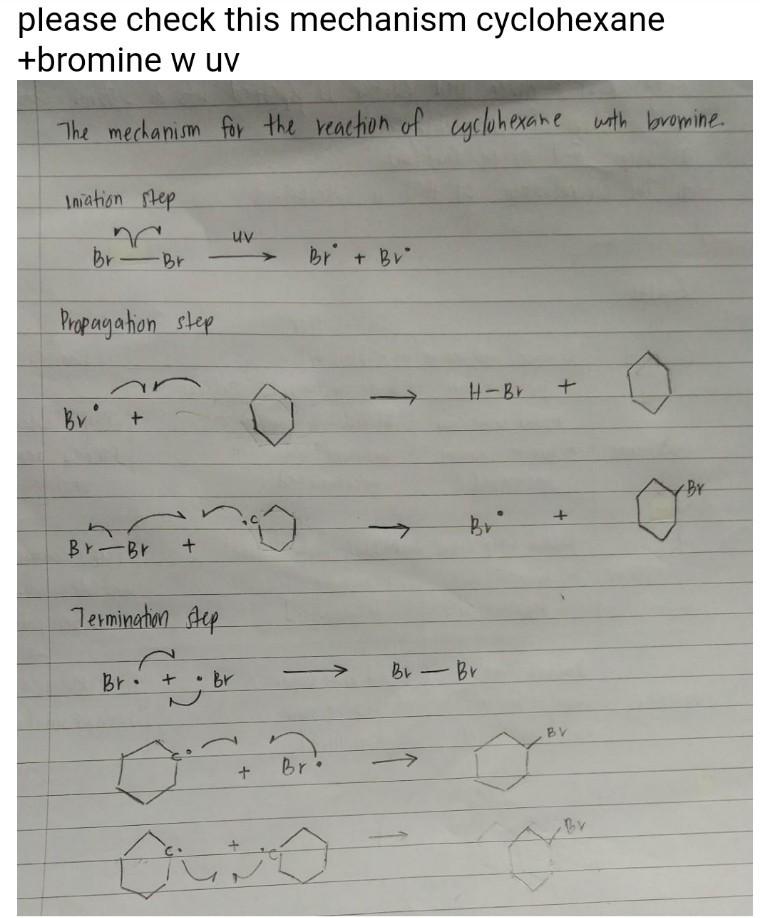 please check this mechanism cyclohexane
+bromine w uv
The mechanism for the reaction of cyclohexane with bromine.
Iniation step
Br — Br uv → Br• + Br•
Propagation step
Br• + → H-Br +
Br—Br + •C → Br• + Br
Termination step
Br • + • Br → Br — Br
C• + Br• → Br
C• + •C → Br